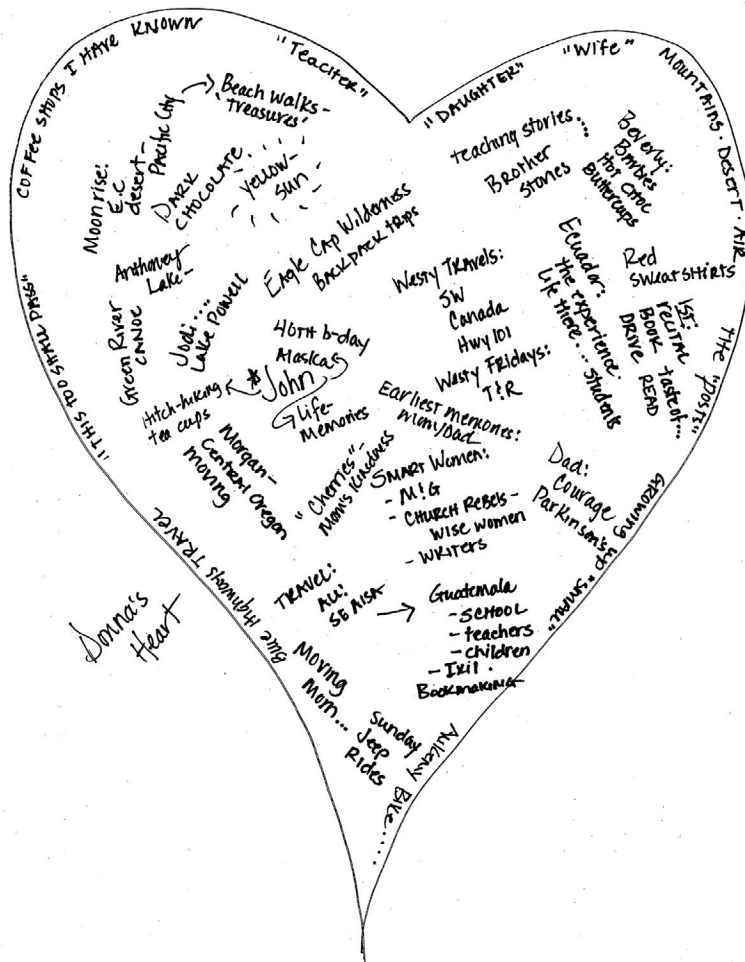 COFFEE SHOPS I HAVE KNOWN
"TEACHER"
"DAUGHTER"
"WIFE"
MOUNTAINS · DESERT · AIR
THE "POST"
GROWING UP "SMALL"
Ankeny Bike......
Blue Highways TRAVEL
"THIS TOO SHALL PASS"
Moonrise:
E.C.
desert-
Pacific City
Beach walks-
'treasures'
DARK
CHOCOLATE
yellow-
sun
Anthoney
Lake-
Green River
CANOE
Jodi....
Lake Powell
Eagle Cap Wilderness
BACKPACK trips
40TH b-day
Alaska
*John
Life-
Memories
Hitch-hiking
tea cups
Morgan-
Central Oregon
moving
"Cherries"-
Mom's Kindness
teaching stories....
Brother
Stories
Beverly:
Barbies
Hot Choc
Buttercups
Red
SWEATSHIRTS
Ecuador:
the experience.
Life there... students
1ST:
recital
BOOK taste of...
DRIVE READ
Westy Travels:
SW
Canada
Hwy 101
Westy Fridays:
T!R
Earliest memories:
mom/Dad
SMART Women:
- M!G
- CHURCH REBELS-
WISE WOMEN
- WRITERS
Dad:
Courage
Parkinson's
TRAVEL:
ALL!
SE AISA
Guatemala
- SCHOOL
- teachers
- children
- Ixil ·
Bookmaking
Moving
Mom...
Sunday
Jeep
Rides
Donna's
Heart